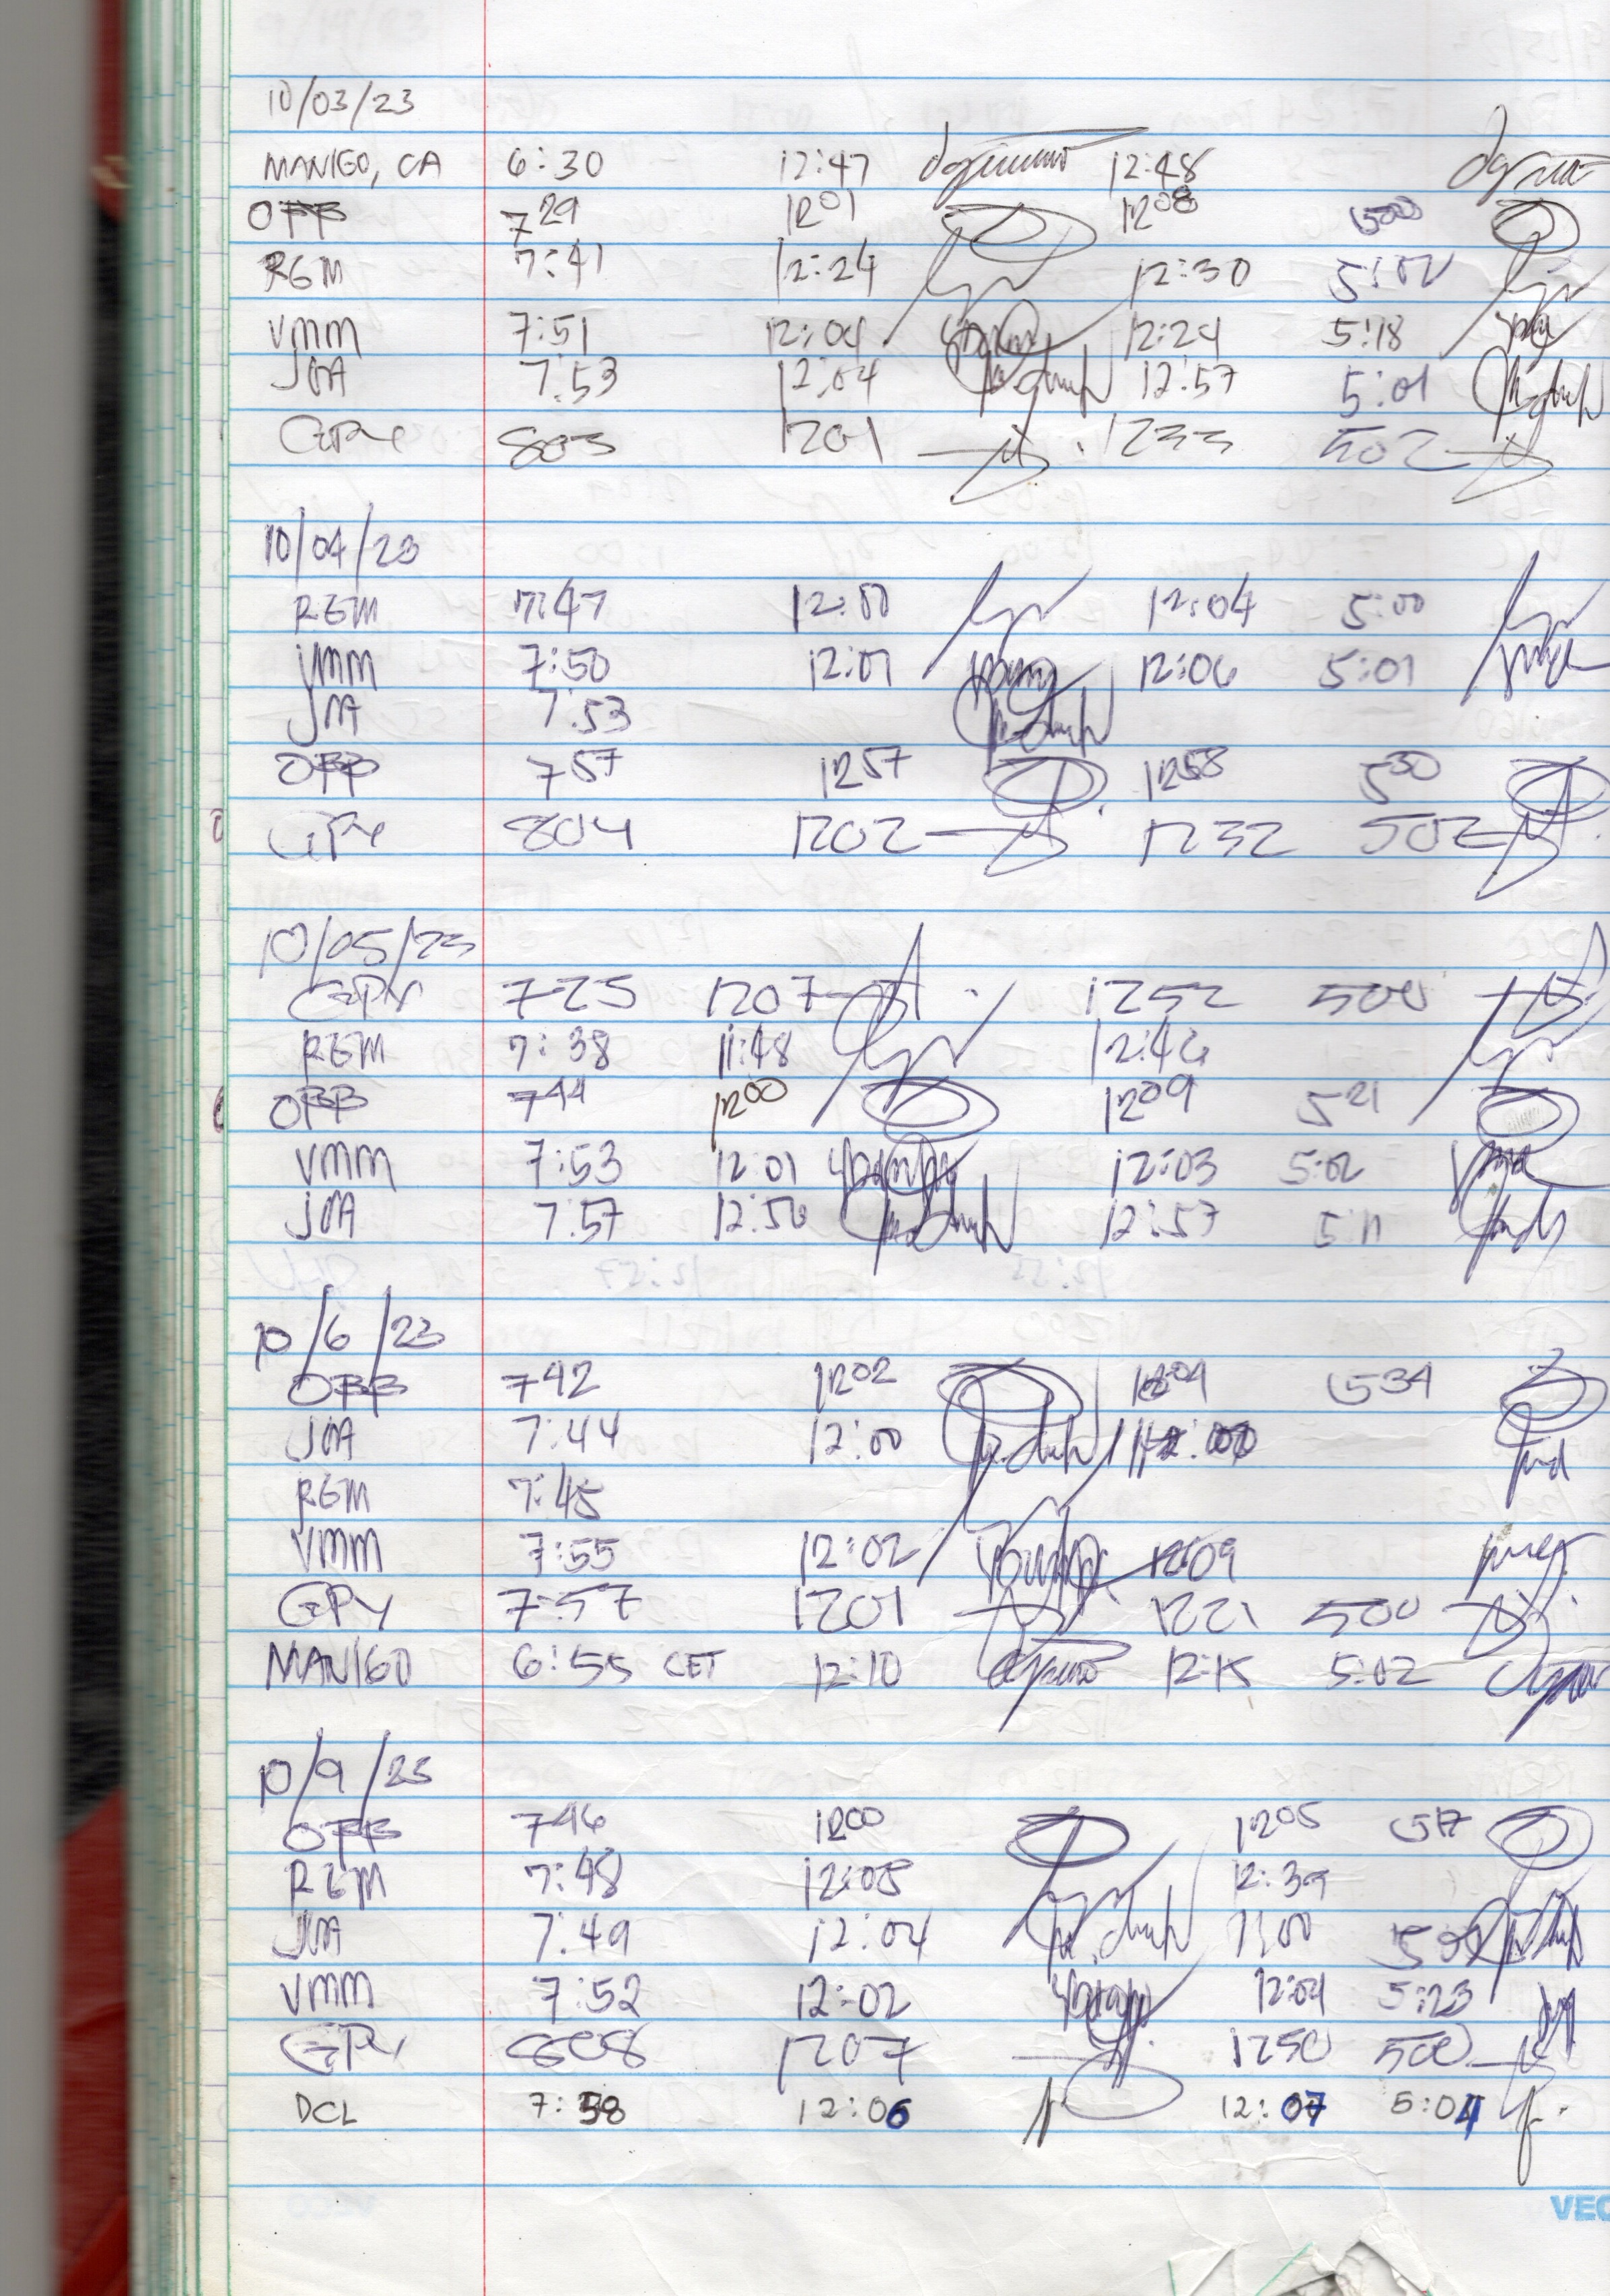 10/03/23
MANIGO, CA 6:30 12:47 12:48
OBB 7 29 12 01 12 08 5 00
RGM 7:41 12:24 12:30 5:02
VMM 7:51 12:04 12:24 5:18
JOA 7:53 12:04 12:57 5:01
GPY 803 1201 1233 502
10/04/23
RGM 7:47 12:00 12:04 5:00
VMM 7:50 12:01 12:06 5:01
JOA 7:53
OBB 7 57 12 57 12 58 5 30
GPY 804 1202 1232 502
10/05/23
GPY 725 1207 1252 500
RGM 7:38 11:48 12:46
OBB 7 44 12 00 12 09 5 21
VMM 7:53 12:01 12:03 5:02
JOA 7:57 12:56 12:57 5:11
10/6/23
OBB 7 42 12 02 5 34
JOA 7:44 12:00
RGM 7:45
VMM 7:55 12:02 12:09
GPY 7:57 1201 1221 500
MANIGO 6:55 CET 12:10 12:15 5:02
10/9/23
OBB 7 46 12 00 12 05 5 17
RGM 7:48 12:08 12:39
JOA 7:49 12:04 1:00
VMM 7:52 12:02 12:04 5:23
GPY 808 1207 1250 500
DCL 7:58 12:06 12:07 5:04